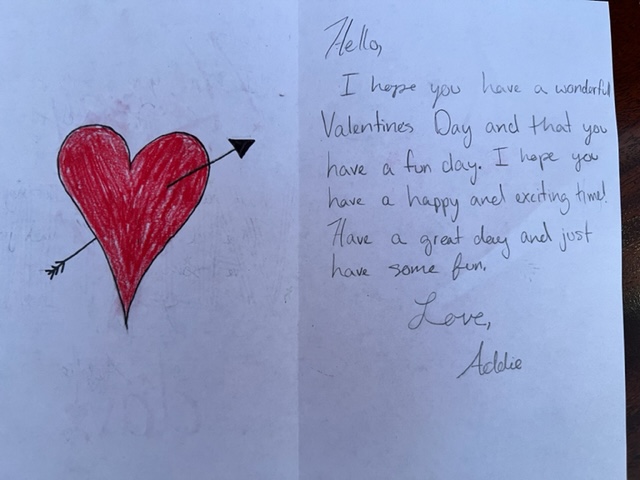 Hello,
I hope you have a wonderful
Valentines Day and that you
have a fun day. I hope you
have a happy and exciting time!
Have a great day and just
have some fun.
Love,
Addie